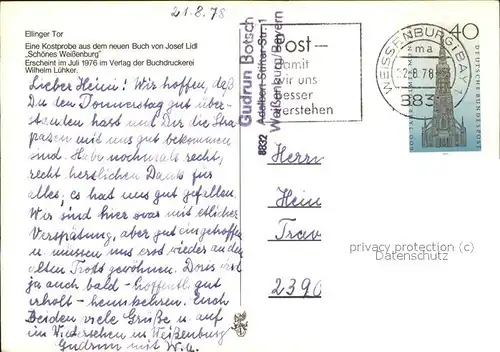 21.8.78
Ellinger Tor
Eine Kostprobe aus dem neuen Buch von Josef Lidl
„Schönes Weißenburg"
Erscheint im Juli 1976 im Verlag der Buchdruckerei
Wilhelm Lühker.
Lieber Heini! Wir hoffen, daß
Du den Donnerstag gut über-
standen hast und Dir die Stra
pazen mit uns gut bekommen
sind. Habe nochmals recht,
recht herzlichen Dank für
alles; es hat uns gut gefallen.
Wir sind hier zwar mit etlicher
Verspätung, aber gut eingetroffen
u. müssen uns erst wieder an den
alten Trott gewöhnen. Doris wird
ja auch bald - hoffentl. gut
erholt - heimkehren. Euch
Beiden viele Grüße u. auf
ein Wiedersehen in Weißenburg
Gudrun mit W.
Gudrun Botsch
Adalbert-Stifter-Str. 1
8832 Weißenburg/Bayern
Post –
damit
wir uns
besser
verstehen
WEISSENBURG (BAY) 1
ma
22.8.78
883
40
DEUTSCHE BUNDESPOST
Herrn
Hein
Trav
2390
privacy protection (c)
Datenschutz